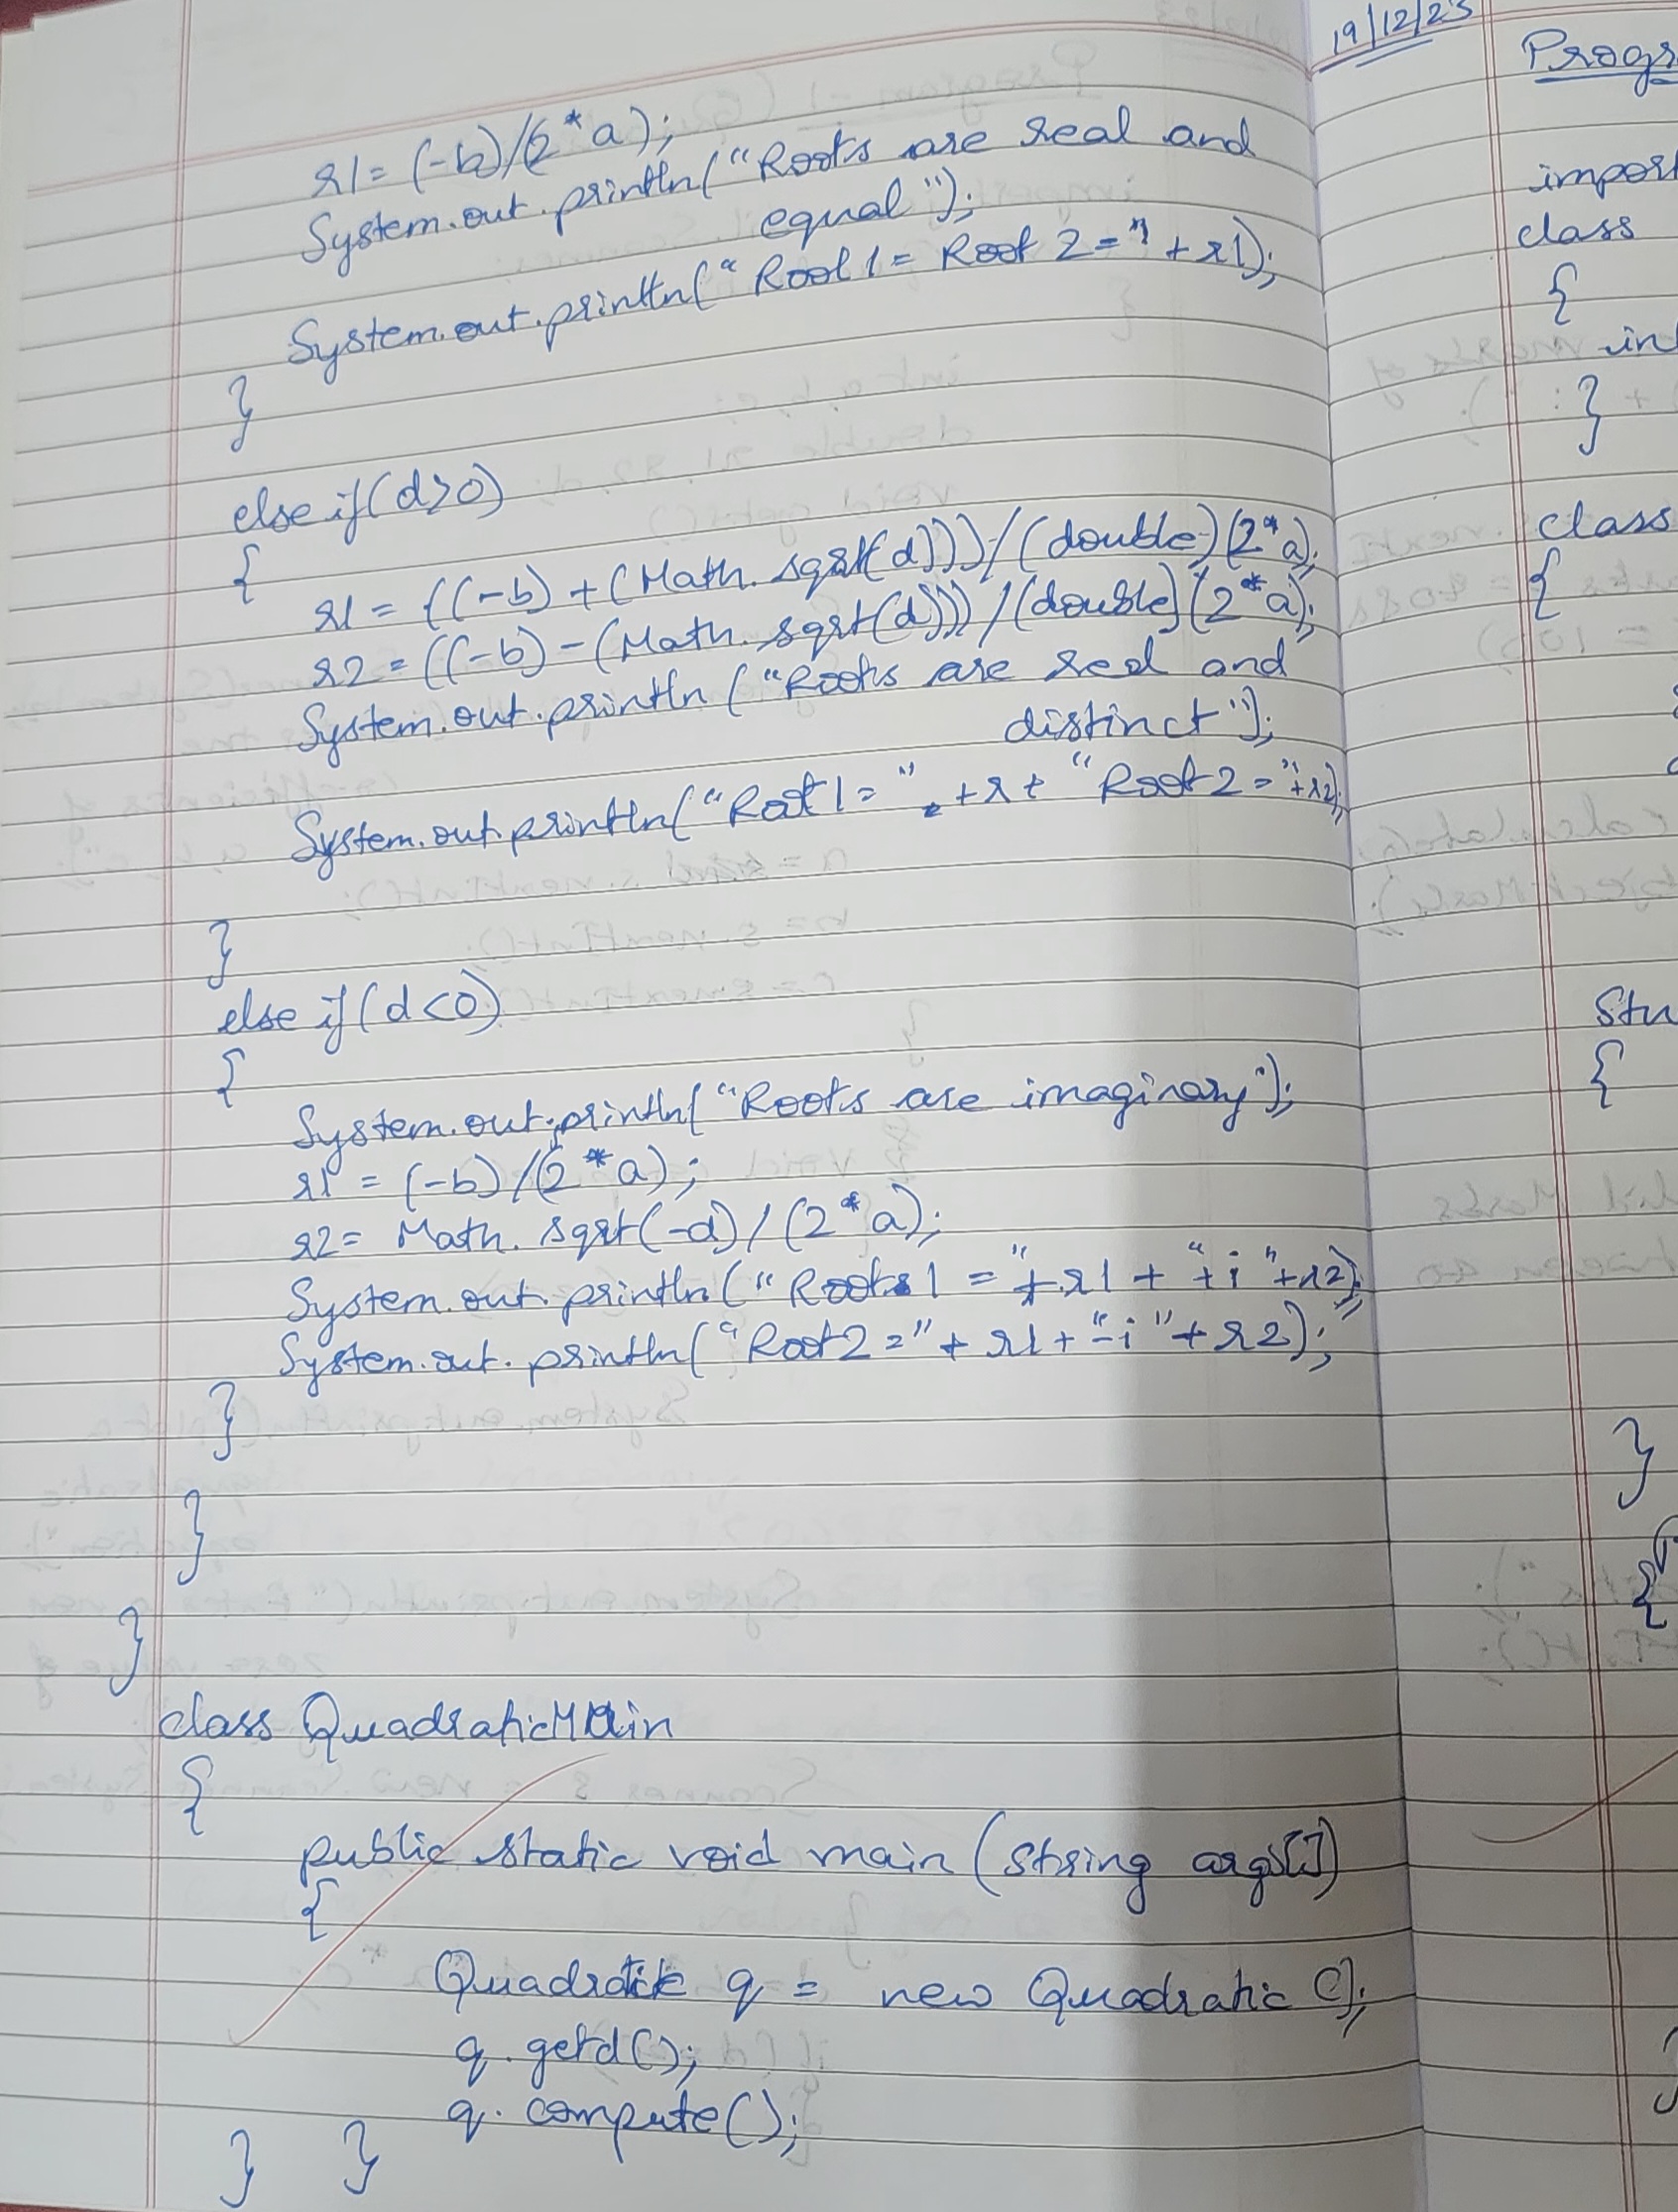 r1 = (-b)/(2*a);
System.out.println("Roots are real and
equal");
System.out.println("Root 1 = Root 2 =" + r1);
}
else if(d>0)
{
r1 = ((-b) + (Math.sqrt(d)))/(double)(2*a);
r2 = ((-b) - (Math.sqrt(d)))/(double)(2*a);
System.out.println("Roots are real and
distinct");
System.out.println("Root 1 = " + r + "Root 2 = "+r2);
}
else if(d<0)
{
System.out.println("Roots are imaginary");
r1 = (-b)/(2*a);
r2 = Math.sqrt(-d)/(2*a);
System.out.println("Root 1 = "+ r1 + "+i"+r2);
System.out.println("Root 2 =" + r1 + "-i"+ r2);
}
}
}
class QuadraticMain
{
public static void main (String args[])
{
Quadratic q = new Quadratic();
q.getd();
q.compute();
} }
19/12/23
Progr
import
class
{
in
}
class
{
Stu
{
}
{
}